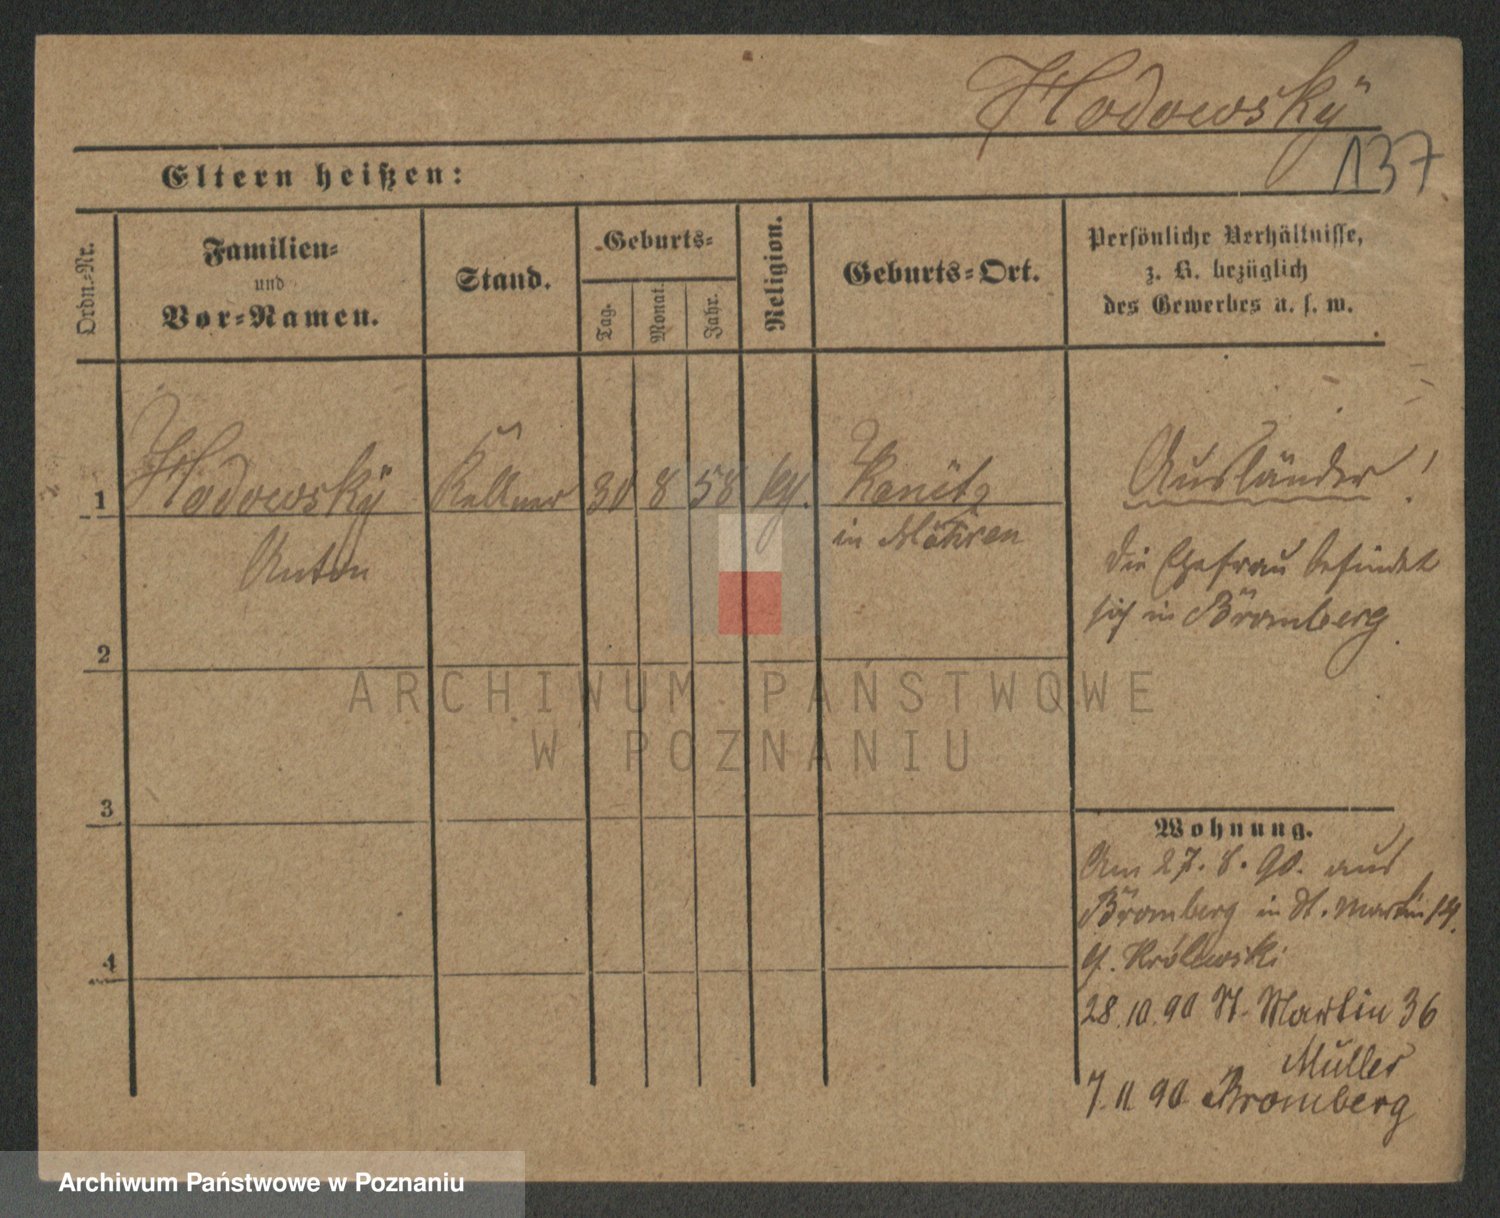 Hodowský
137
Eltern heißen:
Ordn.-Nr.
Familien-
und
Vor-Namen.
Stand.
Geburts-
Tag.
Monat.
Jahr.
Religion.
Geburts-Ort.
Persönliche Verhältnisse,
z. B. bezüglich
des Gewerbes u. s. w.
1 Hodowský Kellner 30 8 58 kg. Kanitz
Anton
in Mähren
Ausländer!
Die Ehefrau befindet
sich in Bromberg.
2
3
4
ARCHIWUM PAŃSTWOWE
W POZNANIU
Wohnung.
Am 27. 8. 90. aus
Bromberg in St. Martin
b. Królewski
28.10.90 St. Martin 36
Müller
7.11.90 Bromberg
Archiwum Państwowe w Poznaniu